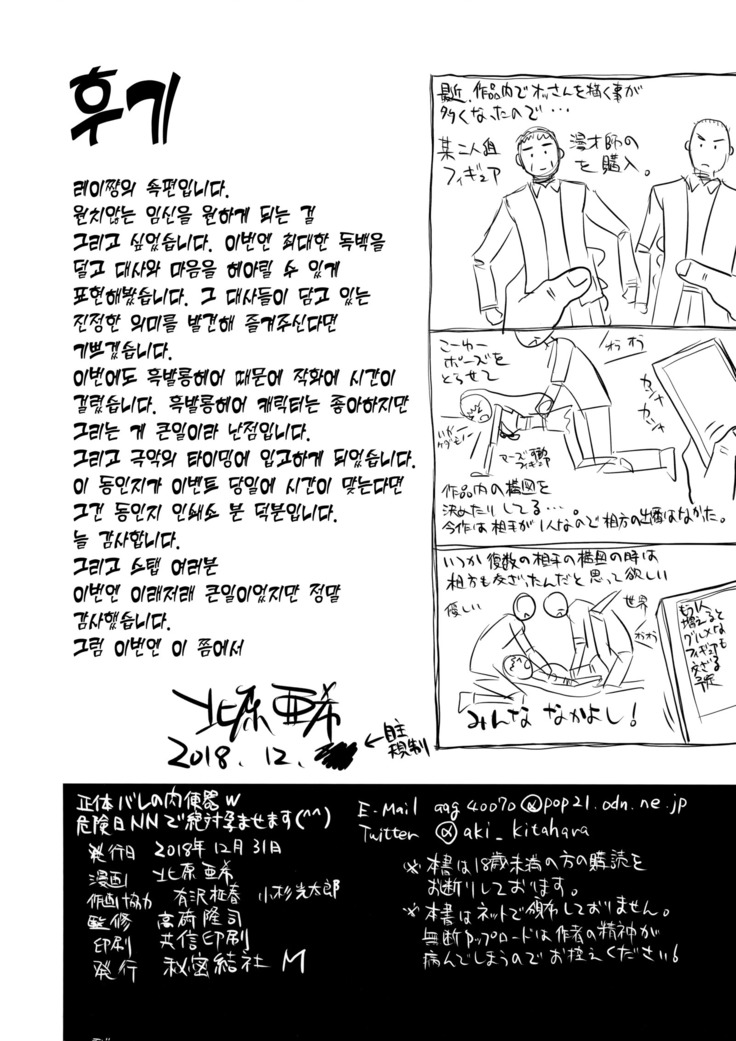 후기
레이짱의 속편입니다.
원치않는 임신을 원하게 되는 걸
그리고 싶었습니다. 이번엔 최대한 독백을
덜고 대사와 마음을 헤아릴 수 있게
표현해봤습니다. 그 대사들이 담고 있는
진정한 의미를 발견해 즐겨주신다면
기쁘겠습니다.
이번에도 흑발롱헤어 때문에 작화에 시간이
걸렸습니다. 흑발롱헤어 캐릭터는 좋아하지만
그리는 게 큰일이라 난점입니다.
그리고 극악의 타이밍에 입고하게 되었습니다.
이 동인지가 이벤트 당일에 시간이 맞는다면
그건 동인지 인쇄소 분 덕분입니다.
늘 감사합니다.
그리고 스탭 여러분
이번엔 이래저래 큰일이었지만 정말
감사했습니다.
그럼 이번엔 이 쯤에서
北原亜希
2018.12.
←自主
規制
最近、作品内でオッさんを描く事が
多くなったので・・・
某二人組 漫才師の
フィギュア を購入。
こーゆー
ポーズを
とらせて
おうおう
ガシャ
ガシャ
いやー
ケダモノー
可動
フィギュア
作品内の構図を
決めたりしてる・・・。
今作は相手が1人なので相方の出番はなかった。
いつか復数の相手の構図の時は
相方も交ざたんだと思って欲しい
優しい
世界
おうおう
もう1人
増えると
グルメな
フィギュアも
交ざる
予定
みんな なかよし!
正体バレの肉便器w
危険日NNで絶対孕ませます(^^)
発行日 2018年12月31日
漫画 北原亜希
作画協力 有沢柾春 小杉光太郎
監修 高荷隆司
印刷 共信印刷
発行 秘密結社M
E-Mail aag40070@pop21.odn.ne.jp
Twitter @aki_kitahara
※本書は18歳未満の方の購読を
お断りしております。
※本書はネットで頒布しておりません。
無断アップロードは作者の精神が
病んでしまうのでお控えください!